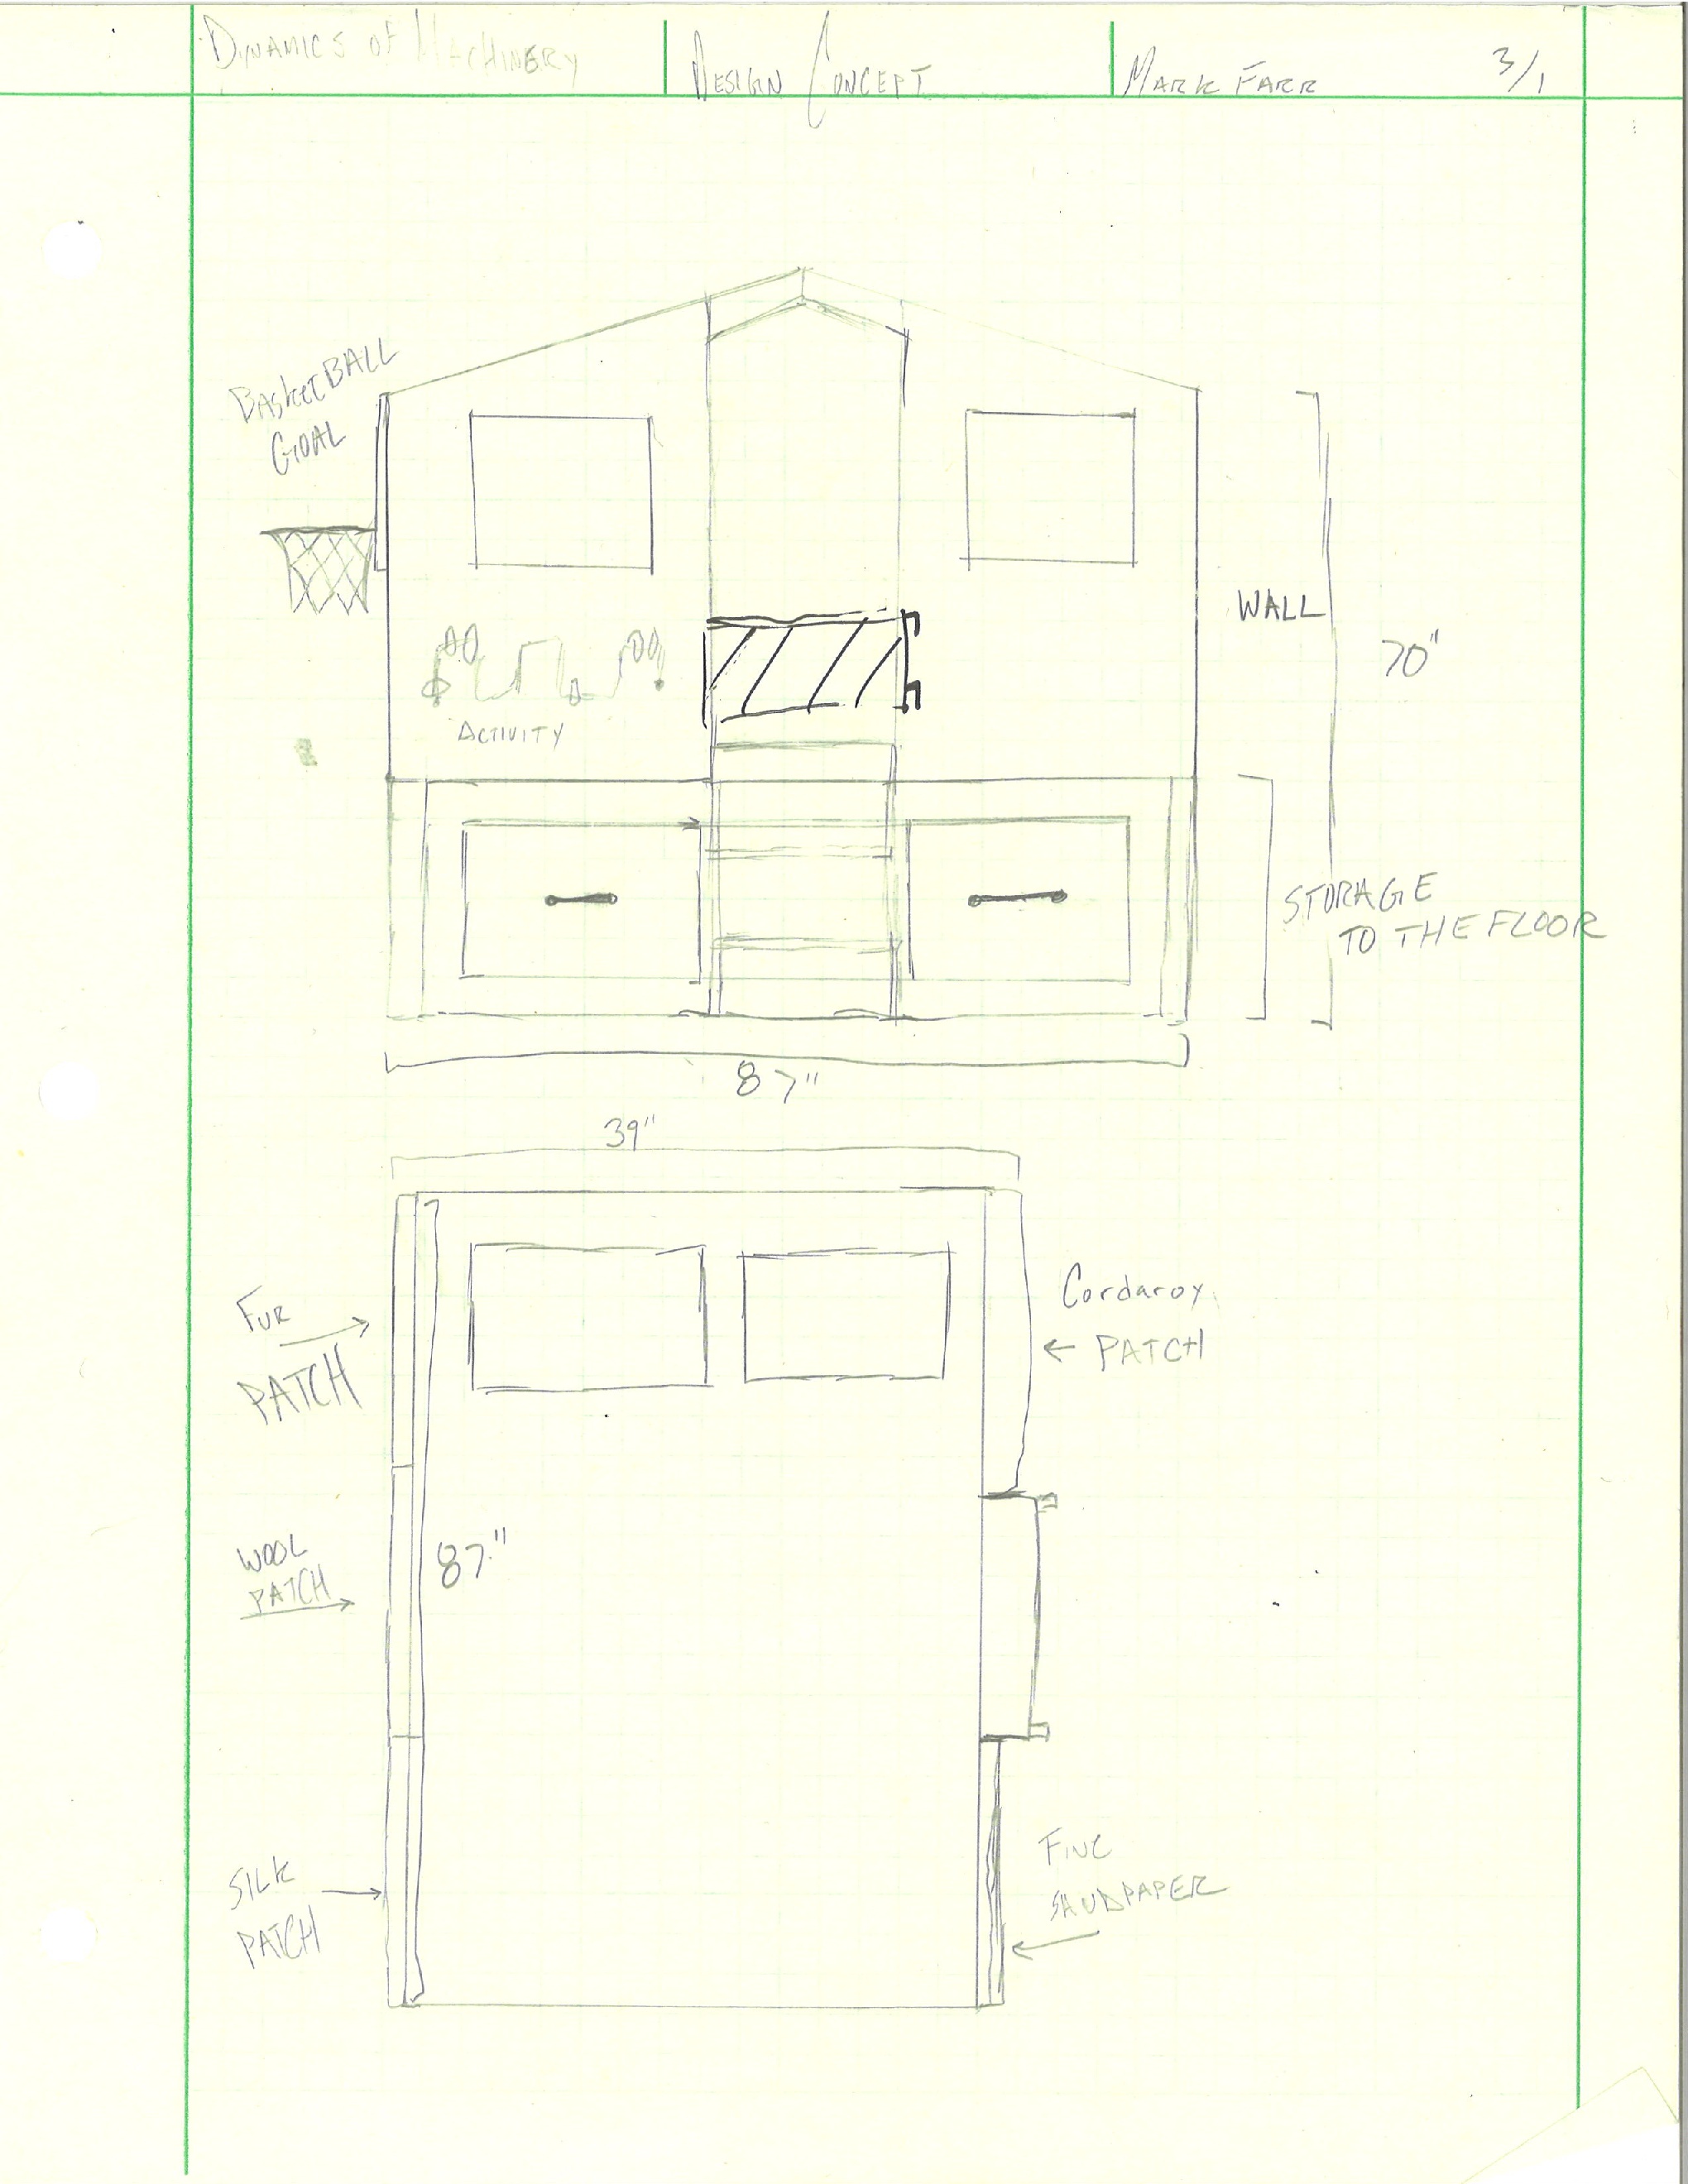 DYNAMICS OF MACHINERY
DESIGN CONCEPT
MARK FARR
3/1
BASKETBALL
GOAL
WALL
70"
ACTIVITY
STORAGE
TO THE FLOOR
87"
39"
FUR
PATCH
Cordaroy
PATCH
WOOL
PATCH
87"
SILK
PATCH
FINE
SANDPAPER